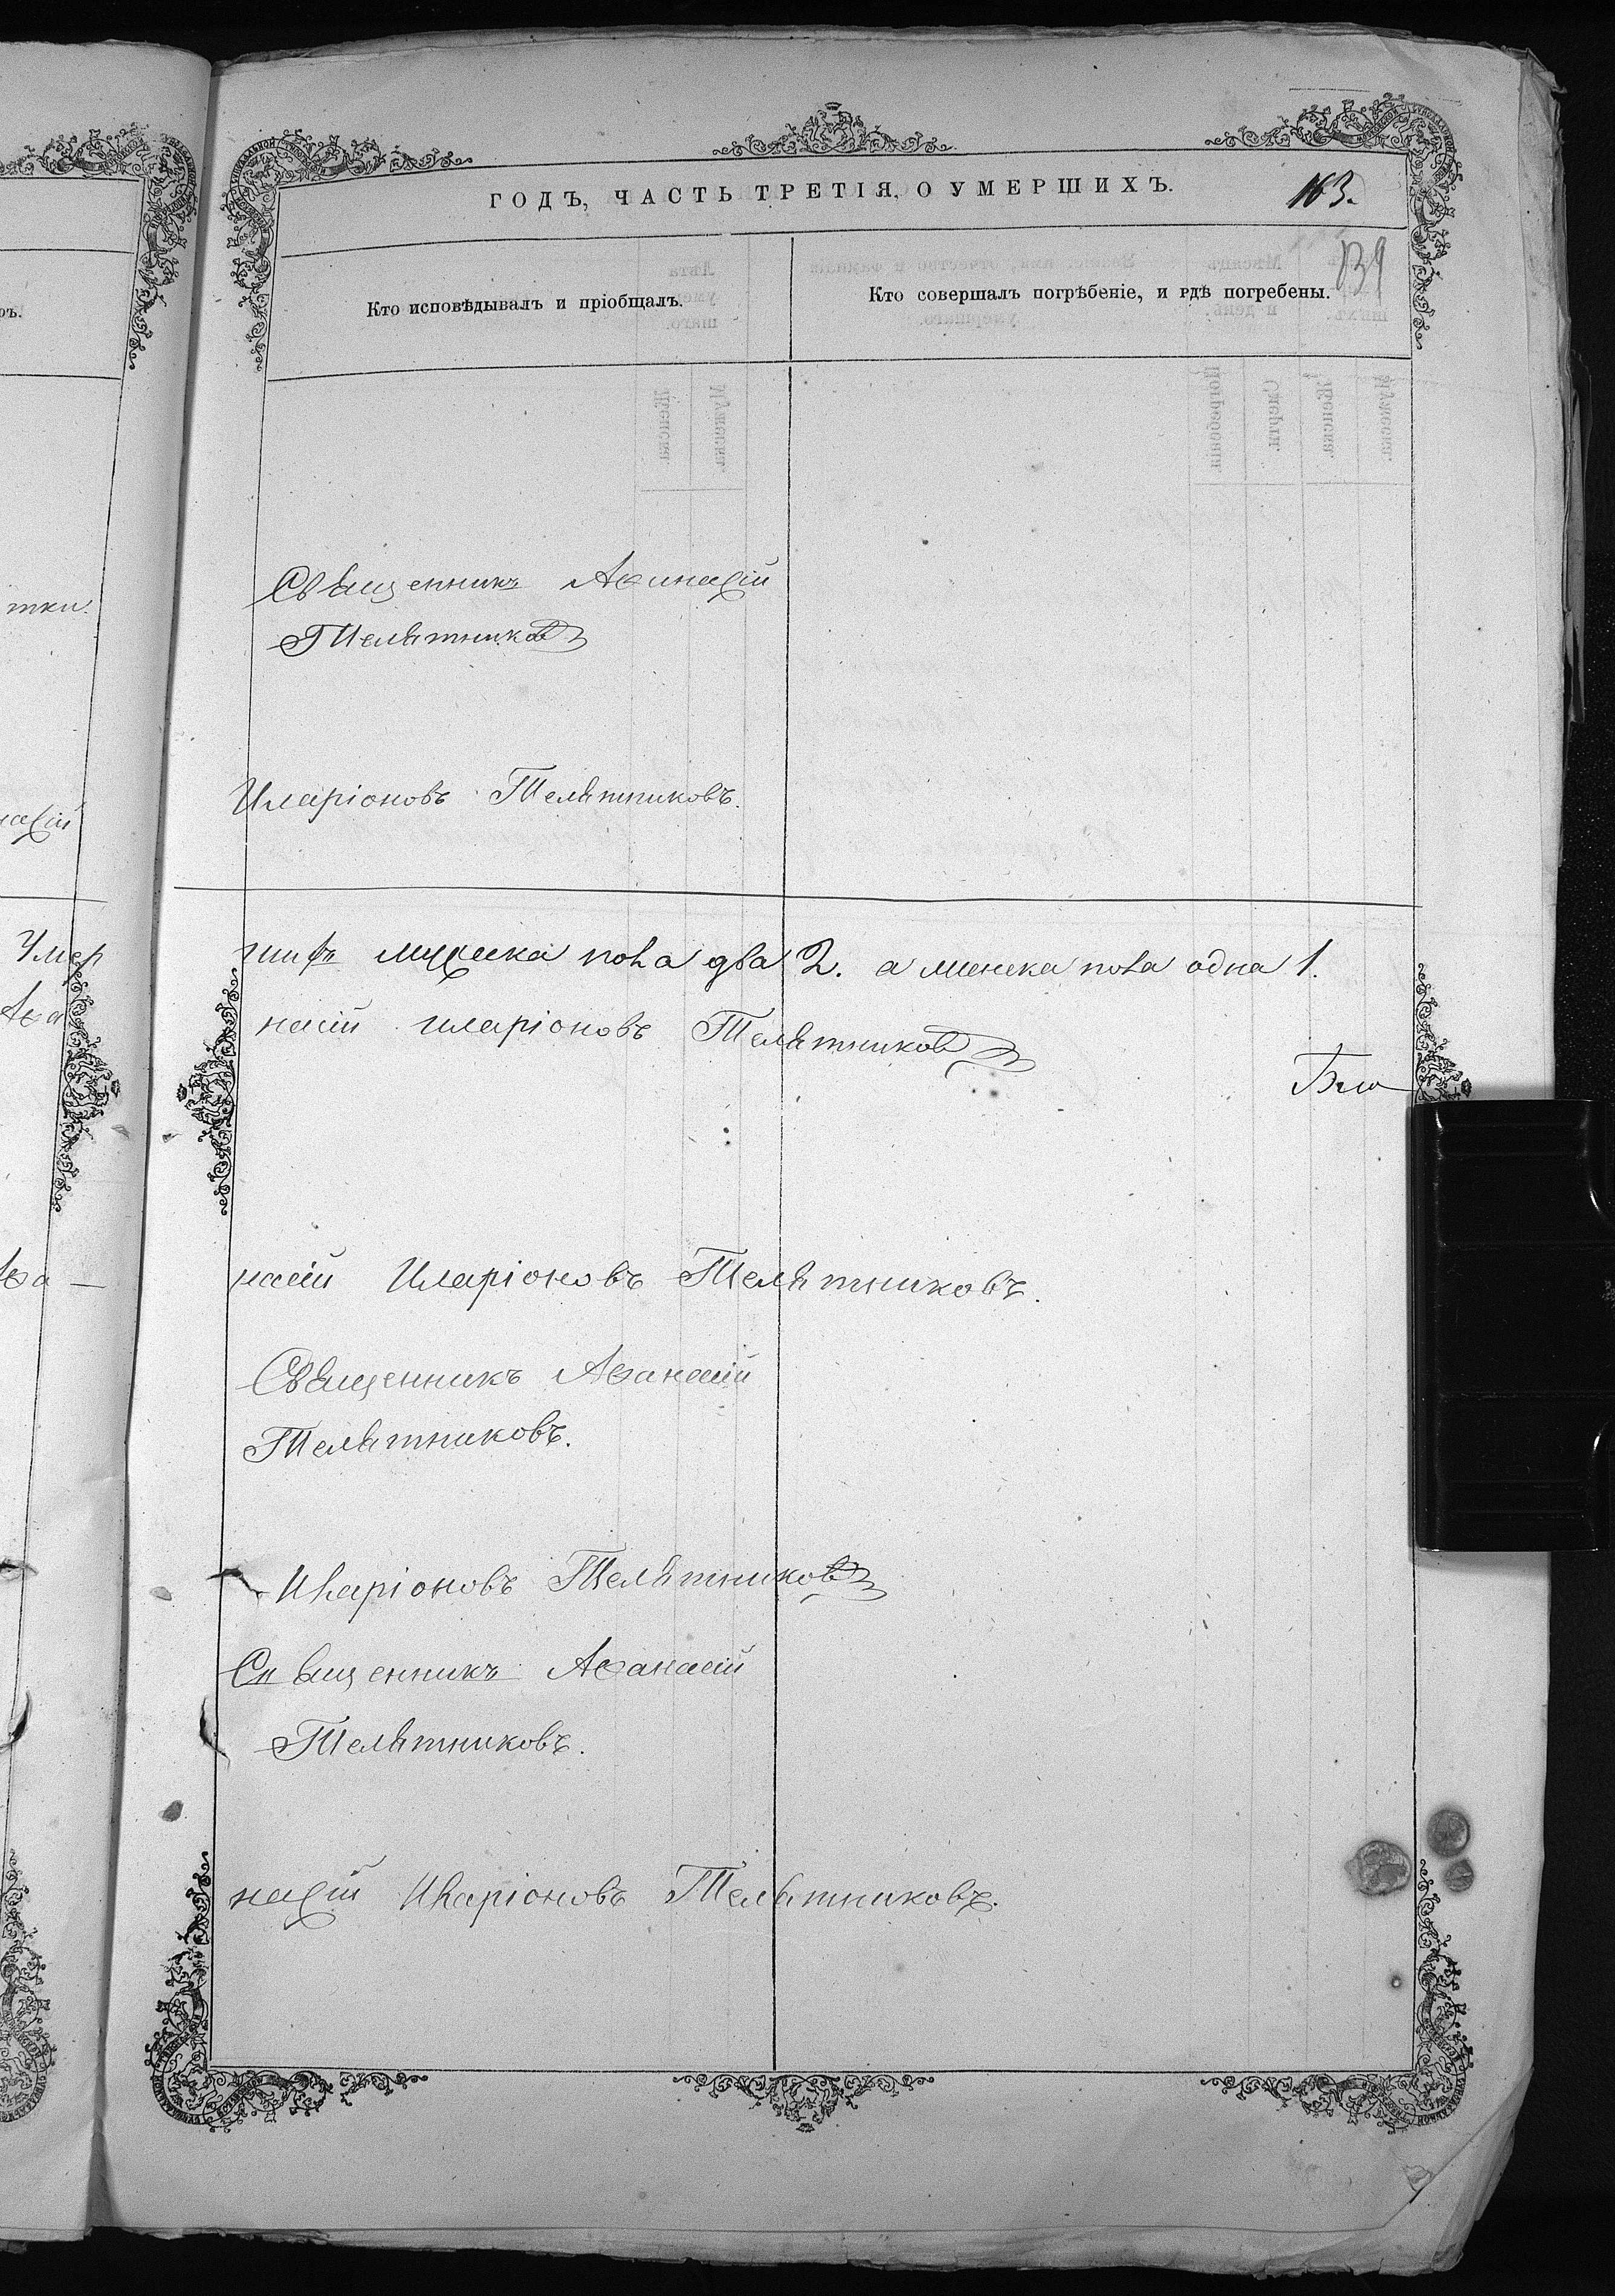 ГОДЪ, ЧАСТЬ ТРЕТІЯ, О УМЕРШИХЪ.
163.
139
Кто исповѣдывалъ и пріобщалъ.
Кто совершалъ погрѣбеніе, и гдѣ погребены.
Священникъ Аѳинасій
Телятниковъ
Иларіоновъ Телятниковъ.
шихъ мужеска пола два 2. а женска пола одна 1.
насій иларіоновъ Телятниковъ
Бла
насій Иларіоновъ Телятниковъ.
Священникъ Аѳанасій
Телятниковъ.
Иларіоновъ Телятниковъ
Священникъ Аѳанасій
Телятниковъ.
насій Иларіоновъ Телятниковъ.
ръ.
тки.
насій
Умер
Аѳа
Аѳа—